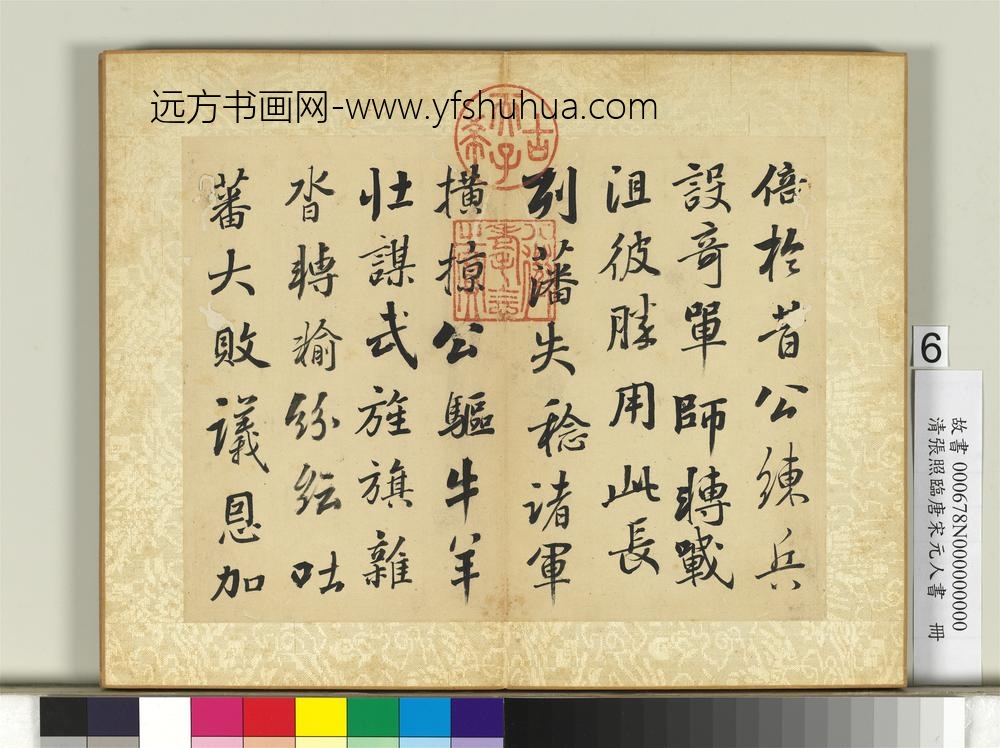 远方书画网-www.yfshuhua.com
古希天子
倍於昔公練兵
設奇單師轉戰
沮彼勝用此長
列藩失稔諸軍
橫掠公驅牛羊
壯謀武旌旗雜
沓轉輸紛紜吐
蕃大敗議恩加
6
故書 000678N000000000
清張照臨唐宋元人書 冊